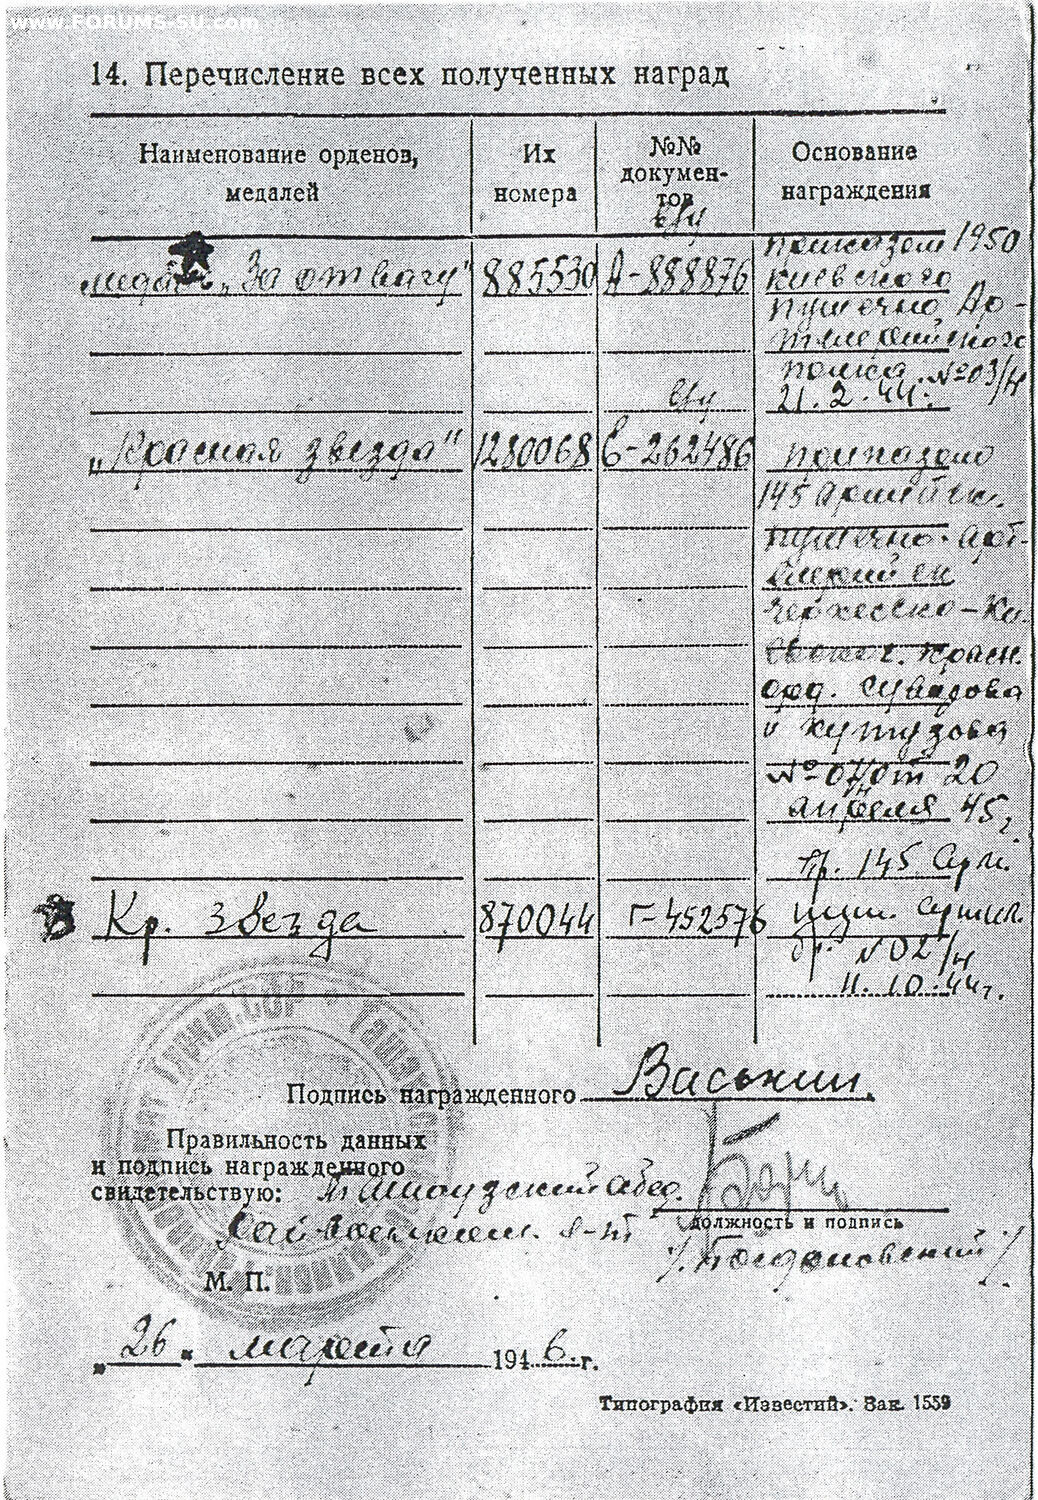 www.FORUMS-SU.com
14. Перечисление всех полученных наград
Наименование орденов, медалей
Их номера
№№ докумен-тов
Основание награждения
медаль „За отвагу" 885530 А-888876 приказом 1950
Киевского
пушечно Ар-
тиллерийского
полка №03/н
21.2.44.
„Красная звезда" 1280068 Е-262486 приказом
145 Армейск.
пушечно-арт-
Черкесско-
г. Красн.
орд. Суварова
и Кутузова
№ 07/н от 20
апреля 45 г.
пр. 145 Арм.
Кр. звезда 870044 Г-452576
бр. №02/н
11.10.44г.
Подпись награжденного Васькин
Правильность данных
и подпись награжденного
свидетельствую:
должность и подпись
/Богдановский/
М. П.
„26" марта 1946 г.
Типография «Известий». Зак. 1559